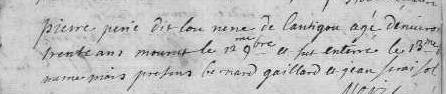 pierre perie dit lou nene de lantigou agé denviron
trente ans mourut le 12me 9bre et fut enterré le 13me
meme mois presens bernard gaillard et jean